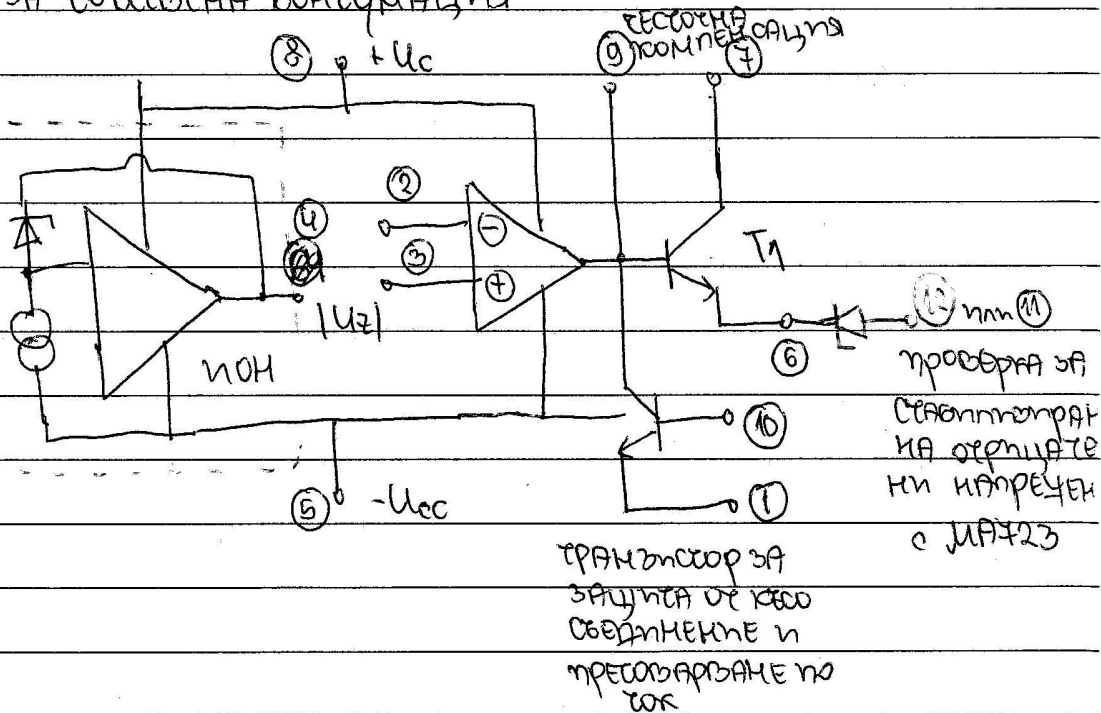 ЗА СОБСТВЕНА КОНСУМАЦИЯ
ЧЕСТОТНА
КОМПЕНСАЦИЯ
8 +Uc
9
7
2
4
3
−
+
|Uz|
T1
ПОН
6
12 или 11
ПРОВЕРКА ЗА
СТАБИЛИЗИРАН
НА ОТРИЦАТЕ
НИ НАПРЕЖЕН
С МА723
10
1
5 -Ucc
ТРАНЗИСТОР ЗА
ЗАЩИТА ОТ КЪСО
СЪЕДИНЕНИЕ И
ПРЕТОВАРВАНЕ ПО
ТОК